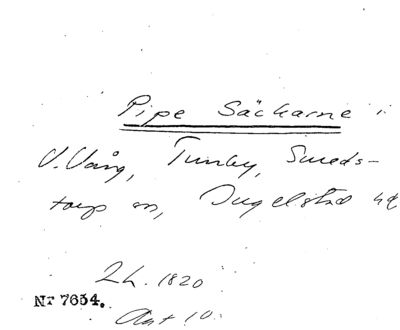 Pipe Säckarne i
V. Vång, Tunby, Smeds-
torps sn, Ingelstad hd
Lh. 1820
Nr 7654.
Akt 10.